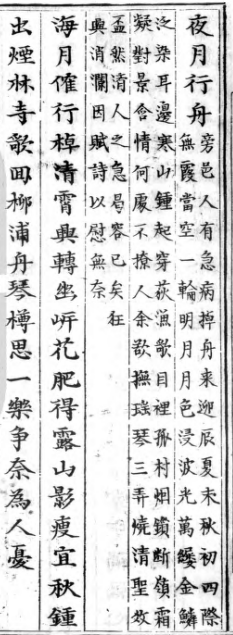 夜月行舟
旁邑人有急病掉舟来迎辰夏末秋初四際
無霞當空一輪明月月色浸波光萬縷金鱗
泛染耳邊寒山鍾起穿荻漁歌目裡孤村烟鎖斷嶺霜
凝對景含情何處不撩人余欲撫瑤琴三弄燒清聖效
盃然消人之急曷容已矣狂
興消瀾因賦詩以慰無奈
海月催行棹清霄興轉幽岍花肥得露山影瘦宜秋鍾
出煙林寺歌回柳浦舟琴樽思一樂争奈為人憂